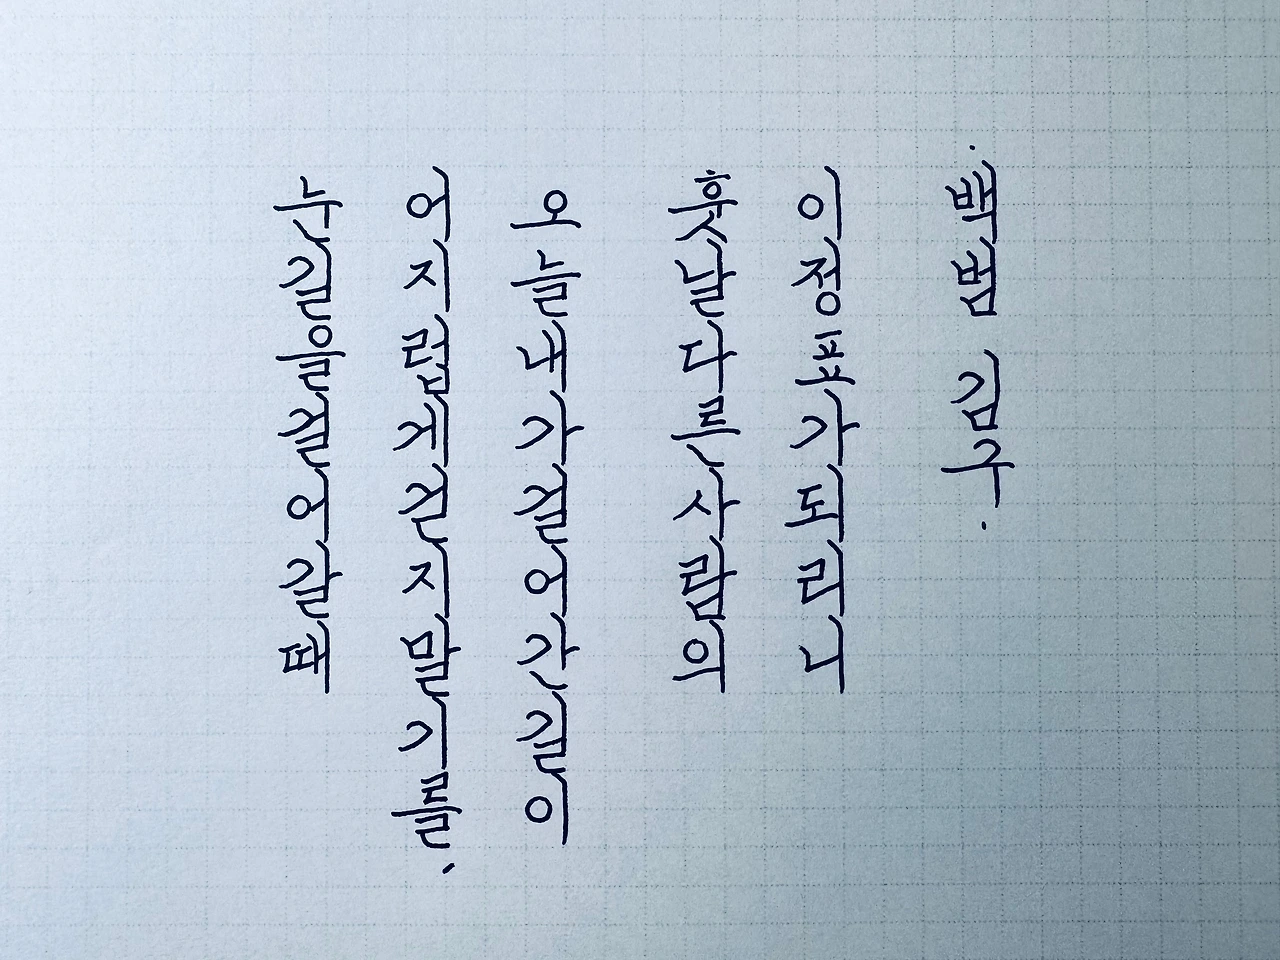 눈길을걸어갈때
어지럽게걷지말기를.
오늘내가걸어간길이
훗날다른사람의
이정표가되리니
·백범 김구·